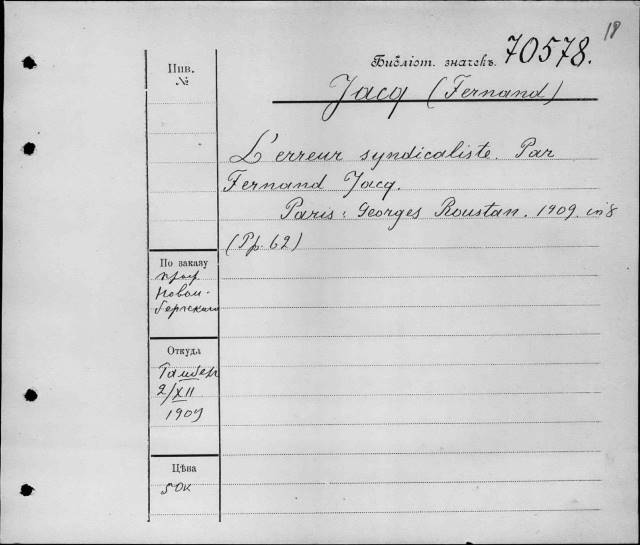 18
Библіот. значекъ 70578.
Инв.
№
Jacq (Fernand)
L'erreur syndicaliste. Par
Fernand Jacq.
Paris: Georges Roustan. 1909. in 8
(Pp. 62)
По заказу
проф
Новом-
бергскаго
Откуда
Гамбер
2/XII
1909
Цѣна
50к